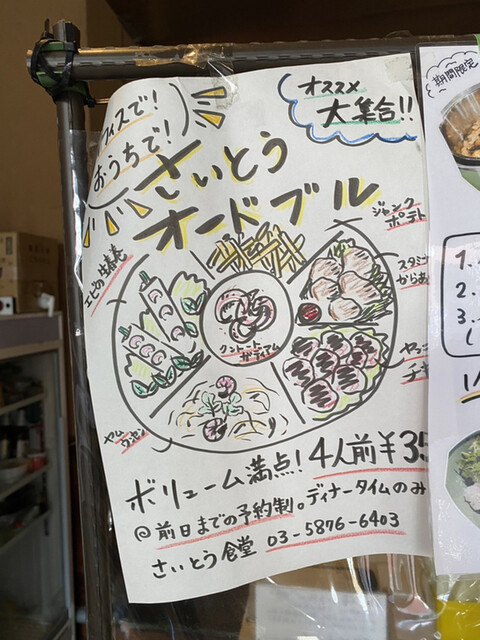 オフィスで!
おうちで!
オススメ
大集合!!
さいとう
オードブル
ジャンク
ポテト
エビの生春巻
スタミナ
からあ
クントート
ガティアム
ヤム
ウンセン
ヤッコ
チキ
ボリューム満点! 4人前¥35
@前日までの予約制。ディナータイムのみ
さいとう食堂 03-5876-6403
期間限定
1.
2.
3.